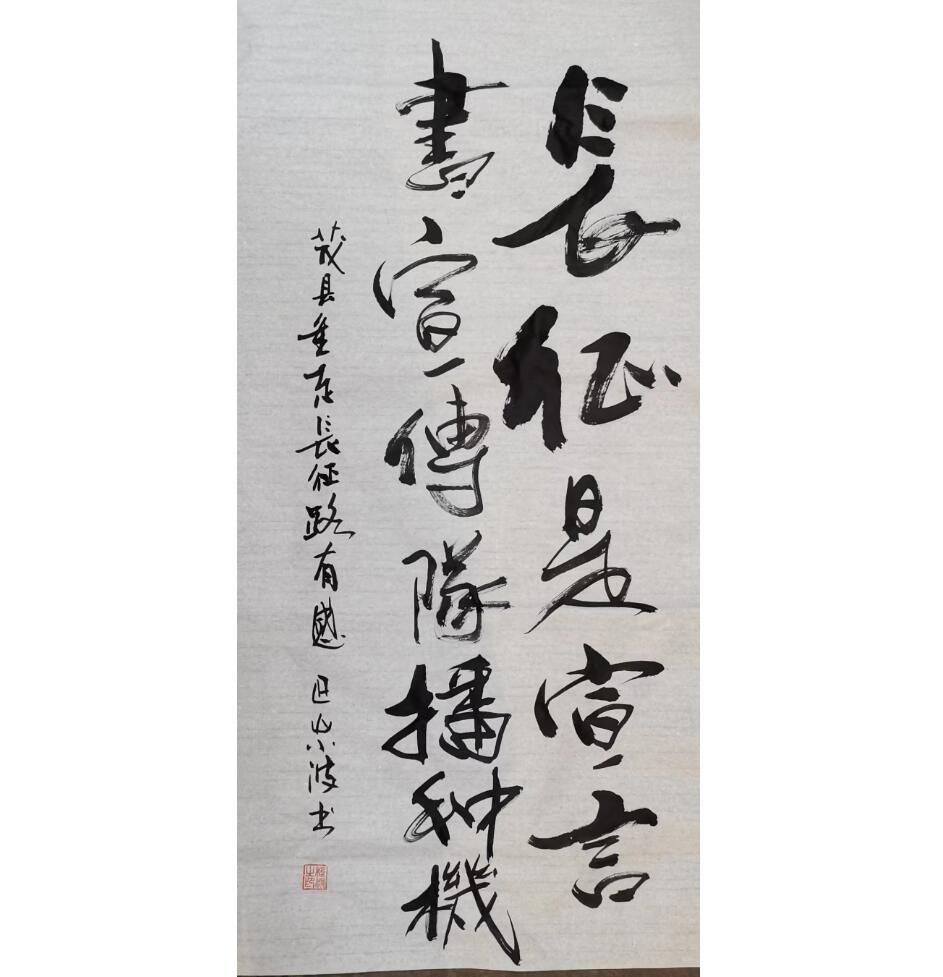 長征是宣言
書宣傳隊播种機
茂县重走長征路有感 巴山小波书